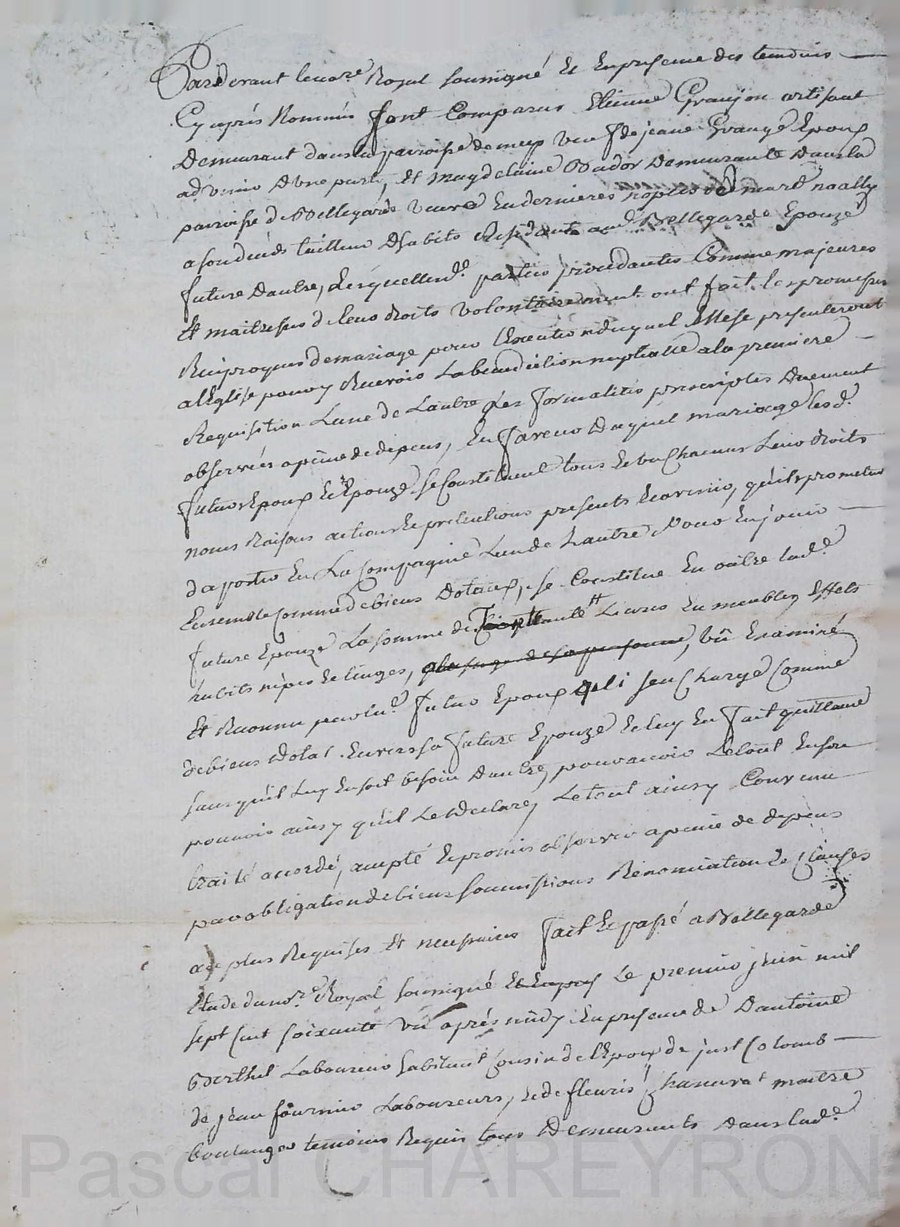 Pardevant le no.re Royal soussigné Et En presence des temoins
Cy après Nommés font Comparus Etienne Granjon artisant
Demeurant dans la parroisse de veuf de jeane Grange Epoux
advenir Dune part, Et Magdelaine Bador Demeurante Dans la
parroisse de Bellegarde veuve En dernieres nopces de
a son deceds tailleur D'habits Residante aud. Bellegarde Epouze
future Dautre, Lesquellesd. parties procedantes Comme majeures
Et maitresses de leurs droits volontairement ont fait les promesses
Reciproques de mariage pour L'Execution duquel Elles se presenteront
a l'Eglise pour y Recevoir La benediction nuptialle a la premiere
Requisition Lune de Lautre Les formalités prescriptes Duement
observées a peine de depens, En faveur Duquel mariage lesd.
futurs Epoux Et Epouze se Constituent tous Et un Chacuns Leurs droits
noms Raisons actions Et pretentions presents Et avenir, quils prometent
daporter En La Compagnie Lun de Lautre Pour En jouir
Ensemble Comme de biens Dotaux, se Constitue En outre lad.
future Epouze La somme de trente tt Livres En meubles Effets
habits nipes Et linges, vû Examiné
Et Reconnu par led. futur Epoux qui sen Charge Comme
de biens Dotal Envers sa future Epouze Et luy En fait quittance
sans quil Luy En soit besoin Dautre, pouvoir Le tout En son
pouvoir ainsy quil Le Declare, Le tout ainsy Convenu
traité accordé, accepté Et promis observer a peine de depens
par obligation de biens soumissions Renonciation Et Clauses
au plus Requises Et necessaires fait Et passé a Bellegarde
Etude du no.re Royal soussigné Le premier juin mil
sept Cent soixante un après midy En presence de D'antoine
Berthet Laboureur habitant Cousin de l'Epoux de just Colomb
de jean fournier Laboureurs, Et de fleuris Chanavat maitre
boulanger temoins Requis tous Demeurants Dans lad.
Pascal CHAREYRON